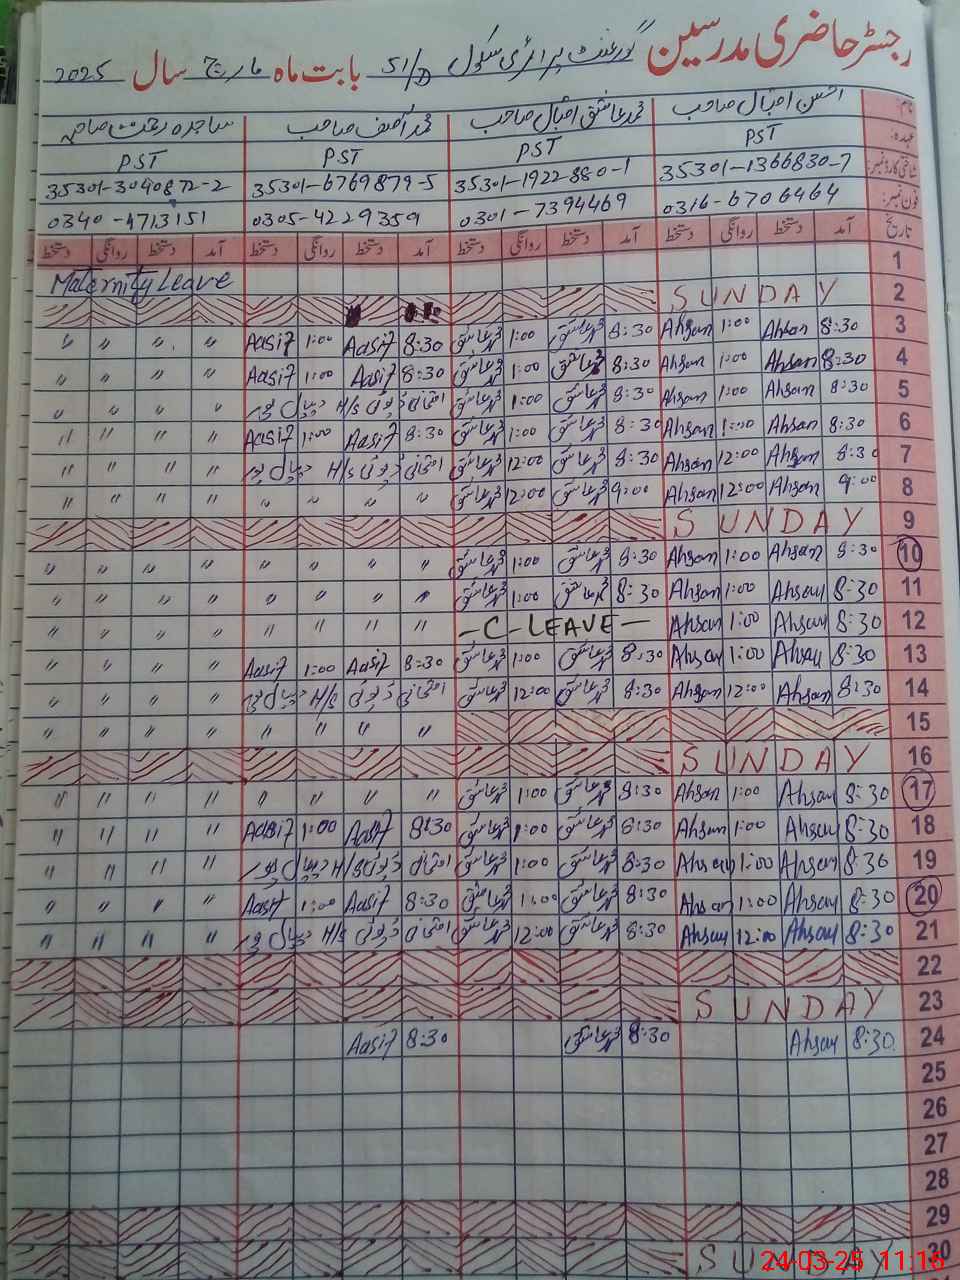 رجسٹر حاضری مدرسین گورنمنٹ پرائمری سکول 51/D بابت ماہ مارچ سال 2025
نام: احسن اقبال صاحب محمد عاشق اقبال صاحب محمد آصف صاحب ساجدہ صاحبہ
عہدہ: PST PST PST PST
شناختی کارڈ نمبر: 35301-1366830-7 35301-1922880-1 35301-6769879-5 35301-3040872-2
فون نمبر: 0316-6706464 0301-7394469 0305-4229359 0340-4713151
تاریخ آمد دستخط روانگی دستخط آمد دستخط روانگی دستخط آمد دستخط روانگی دستخط آمد دستخط روانگی دستخط
1 Maternity Leave
2 SUNDAY
3 8:30 Ahsan 1:00 Ahsan 8:30 محمد عاشق 1:00 محمد عاشق 8:30 Aasif 1:00 Aasif " " " "
4 8:30 Ahsan 1:00 Ahsan 8:30 محمد عاشق 1:00 محمد عاشق 8:30 Aasif 1:00 Aasif " " " "
5 8:30 Ahsan 1:00 Ahsan 8:30 محمد عاشق 1:00 محمد عاشق امتحانی ڈیوٹی H/S " " " "
6 8:30 Ahsan 1:00 Ahsan 8:30 محمد عاشق 1:00 محمد عاشق 8:30 Aasif 1:00 Aasif " " " "
7 8:30 Ahsan 12:00 Ahsan 8:30 محمد عاشق 12:00 محمد عاشق امتحانی ڈیوٹی H/S " " " "
8 9:00 Ahsan 12:00 Ahsan 9:00 محمد عاشق 12:00 محمد عاشق " " " " " " " "
9 SUNDAY
10 8:30 Ahsan 1:00 Ahsan 8:30 محمد عاشق 1:00 محمد عاشق " " " " " " " "
11 8:30 Ahsan 1:00 Ahsan 8:30 محمد عاشق 1:00 محمد عاشق " " " " " " " "
12 8:30 Ahsan 1:00 Ahsan -C-LEAVE- " " " " " " " "
13 8:30 Ahsan 1:00 Ahsan 8:30 محمد عاشق 1:00 محمد عاشق 8:30 Aasif 1:00 Aasif " " " "
14 8:30 Ahsan 12:00 Ahsan 8:30 محمد عاشق 12:00 محمد عاشق امتحانی ڈیوٹی H/S " " " "
15 " " " " " " " "
16 SUNDAY
17 8:30 Ahsan 1:00 Ahsan 8:30 محمد عاشق 1:00 محمد عاشق " " " " " " " "
18 8:30 Ahsan 1:00 Ahsan 8:30 محمد عاشق 1:00 محمد عاشق 8:30 Aasif 1:00 Aasif " " " "
19 8:30 Ahsan 1:00 Ahsan 8:30 محمد عاشق 1:00 محمد عاشق امتحانی ڈیوٹی H/S " " " "
20 8:30 Ahsan 1:00 Ahsan 8:30 محمد عاشق 1:00 محمد عاشق 8:30 Aasif 1:00 Aasif " " " "
21 8:30 Ahsan 12:00 Ahsan 8:30 محمد عاشق 12:00 محمد عاشق امتحانی ڈیوٹی H/S " " " "
22
23 SUNDAY
24 8:30 Ahsan 8:30 محمد عاشق 8:30 Aasif
25
26
27
28
29
30 SUNDAY
24-03-25 11:16